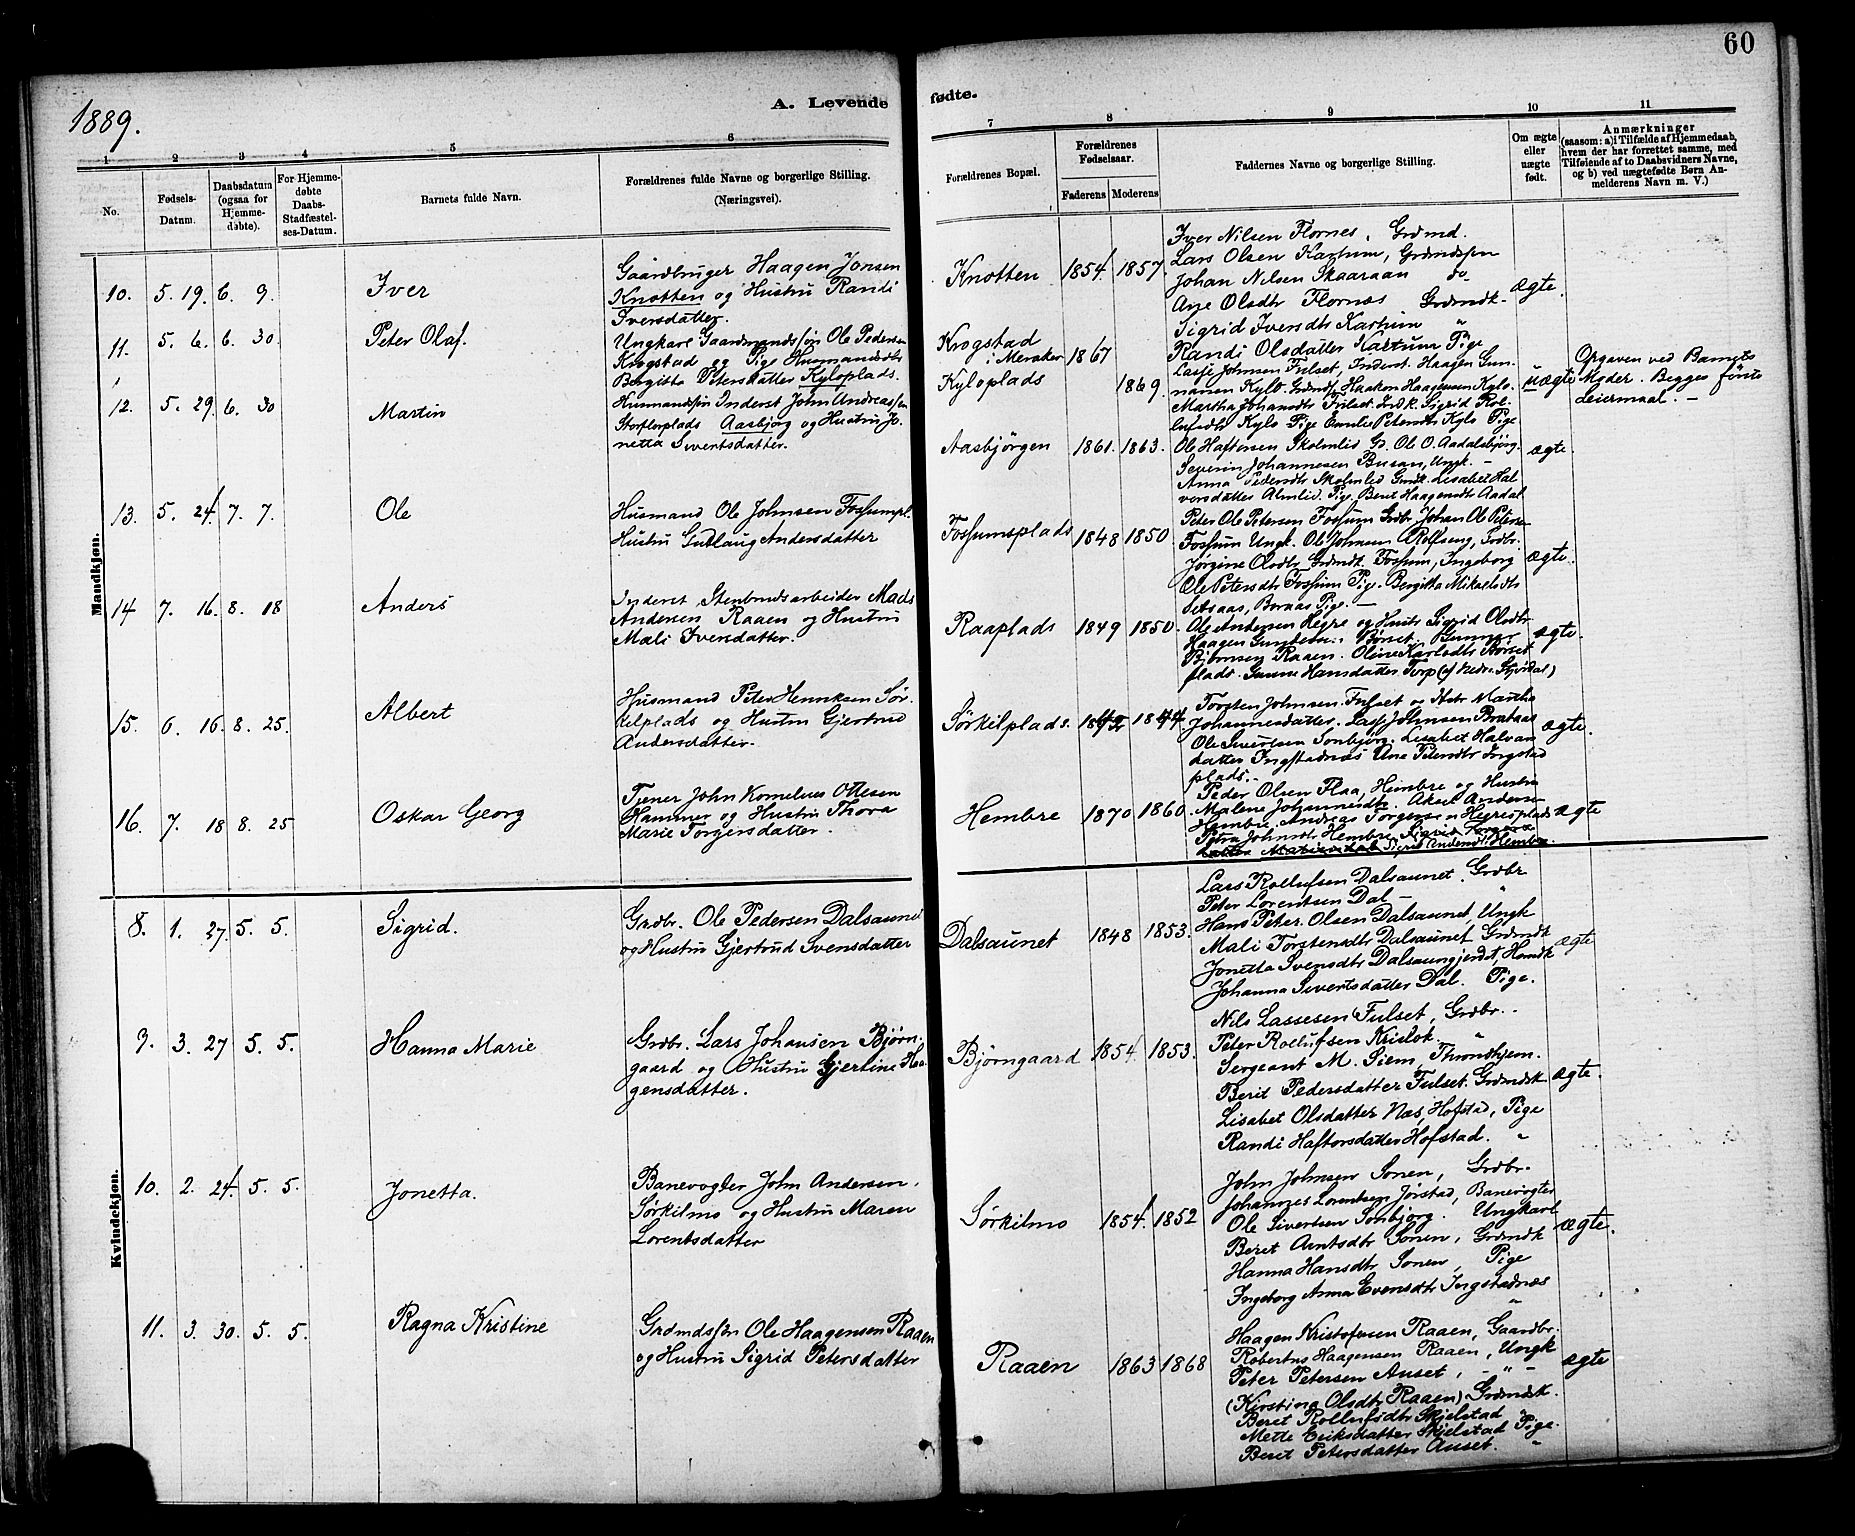 60
1889.
A. Levende
fødte.
1 2 3 4 5 6
7 8 9 10 11
No.
Fødsels-
Datum.
Daabsdatum
(ogsaa for
Hjemme-
døbte).
For Hjemme-
døbte
Daabs-
Stadfæstel-
ses-Datum.
Barnets fulde Navn.
Forældrenes fulde Navne og borgerlige Stilling.
(Næringsvei).
Forældrenes Bopæl.
Forældrenes
Fødselsaar.
Faderens Moderens
Faddernes Navne og borgerlige Stilling.
Om ægte
eller
uægte
født.
Anmærkninger
(saasom: a) i Tilfælde af Hjemmedaab,
hvem der har forrettet samme, med
Tilføiende af to Daabsvidners Navne,
og b) ved uægtefødte Børn An-
melderens Navn m. V.)
Mandkjøn.
10. 5. 19. 6. 9.
Iver
Gaardbruger Haagen Jonsen
Knotten og Hustru Randi
Iversdatter.
Knotten 1854. 1857.
Iver Nilsen Flornes, Grdmd.
Lars Olsen Karhum, Grdmdssøn
Johan Nilsen Skaaraan do
Ane Olsdtr Flornæs Grdmdk.
Sigrid Iversdtr Karhum "
Randi Olsdatter Kartum Pige
ægte
11. 5. 6. 6. 30
Peter Olaf.
Ungkarl Gaardmandssøn Ole Pedersen
Krogstad og Pige Husmandsdtr
Bergitta Petersdatter Kyloplads.
Krogstad
i Meraker 1867
Kyloplads 1869.
Lasse Johnsen Fulset, Inderst. Haagen Gun-
nansen Kylo. Grdmds. Haakon Haagensen Kylo
Martha Johansdtr Fulset. Indk. Sigrid Rol-
lufsdtr Kylo Pige Emilie Petersdtr Kylo Pige
uægte
Opgaven ved Barnets
Moder. Begges første
Leiermaal. —
12. 5. 29. 6. 30
Martin
Husmandssøn Inderst John Andreassen
Storflorplads Aasbjørg og Hustru Jo-
netta Sivertsdatter.
Aasbjørgen 1861. 1863.
Ole Haftorsen Skolmlid Gd. Ole O. Aadalsbjørg.
Severin Johannesen Busan, Ungk. —
Anna Pedersdtr Skolmlid Grmdk Lisabet Hal-
versdatter Almlid. Pige Berit Haagensdtr Aadal
ægte.
13. 5. 24. 7. 7.
Ole
Husmand Ole Johnsen Fossumpl.
Hustru Gullaug Andersdatter
Fossumsplads 1848 1850.
Peter Ole Petersen Fossum Grdbr. Johan Ole Peters.
Fossum Ungk. Ole Johnsen Rolfseng, Grdbr.
Jørgine Olsdtr Grdmdk. Fossum, Ingeborg
Ole Petersdtr Fossum Pige. Bergitta Mikaelsdtr
Setsaas, Pige. —
ægte.
14 7. 16. 8. 18
Anders
Inderst Stenbrudsarbeider Mads
Andersen Raaen og Hustru
Mali Iversdatter.
Raaplads 1849 1850.
Ole Andersen Hegre og Hustr Sigrid Olsdtr.
Haagen Gundersen Børset. Gunnar
Bjørnsen Raaen. Oline Karlsdtr Børset
plads. Gunne Hansdatter Torp (af Nedre Stjørdal)
ægte.
15. 6. 16. 8. 25.
Albert
Husmand Peter Henriksen Sør-
kilplads og Hustru Gjertrud
Andersdatter.
Sørkilplads. 1842 1844.
Torsten Johnsen Fulset og Hstr Martha
Johannesdatter. Lasse Johnsen Brataas
Ole Sivertsen Sonbjørg. Lisabet Halvars
datter Ingstadnæs Ane Petersdtr Ingstad
plads. —
ægte.
16. 7. 18 8. 25
Oskar Georg
Tjener John Kornelius Ottesen
Hammer og Hustru Thora
Marie Torgersdatter.
Hembre 1870 1860.
Peder Olsen Flaa, Hembre og Hustru
Malene Johannesdtr. Aksel Andersen
Hembre. Andreas Torgersen Hegresplads
Petra Johnsdtr Hembre. Sigrid Torgers
datter Sigrid Andersdtr Hembre.
ægte
Kvindekjøn.
8. 1. 27. 5. 5.
Sigrid.
Grdbr. Ole Pedersen Dalsaunet
og Hustru Gjertrud Svensdatter
Dalsaunet 1848 1853.
Lars Rollufsen Dalsaunet. Grdbr
Peter Lorentsen Dal — "
Hans Peter Olsen Dalsaunet, Ungk
Mali Torstensdtr Dalsaunet Grdmdk
Jonetta Svensdtr Dalsaungjerdet, Hsmdk
Johanna Sivertsdatter Dal. Pige.
ægte
9. 3. 27 5. 5.
Hanna Marie
Grdbr. Lars Johansen Bjørn-
gaard og Hustru Gjertine Haa-
gensdatter.
Bjørngaard 1854. 1853.
Nils Lassesen Fulset, Grdbr.
Peter Rollufsen Krislok. "
Sergeant M. Siem, Throndhjem.
Berit Pedersdatter Fulset. Grdmdsk
Lisabet Olsdatter Næs, Hofstad, Pige
Randi Haftorsdatter Hofstad. "
ægte.
10. 2. 24. 5. 5.
Jonetta.
Banevogter John Andersen,
Sørkilmo og Hustru Maren
Lorentsdatter
Sørkilmo 1854. 1852
John Johnsen Sonen, Grdbr.
Johannes Lorentsen Jørstad, Banevogter
Ole Sivertsen Sonbjørg. Ungkarl
Beret Arntsdtr Sonen, Grdmdk
Hanna Hansdtr Sonen, Pige
Ingeborg Anna Evensdtr Ingstadnæs
"
ægte.
11. 3. 30. 5. 5.
Ragna Kristine
Grdmdssøn Ole Haagensen Raaen
og Hustru Sigrid Petersdatter
Raaen 1863 1868
Haagen Kristofersen Raaen, Gaardbr.
Robertus Haagensen Raaen, Ungk
Peter Petersen Auset, — " —
(Kirstina Olsdtr Raaen) Grdmdk.
Beret Rollufsdtr Skjelstad
Mette Eriksdatter Skjelstad Pige.
Beret Petersdatter Auset. "
ægte